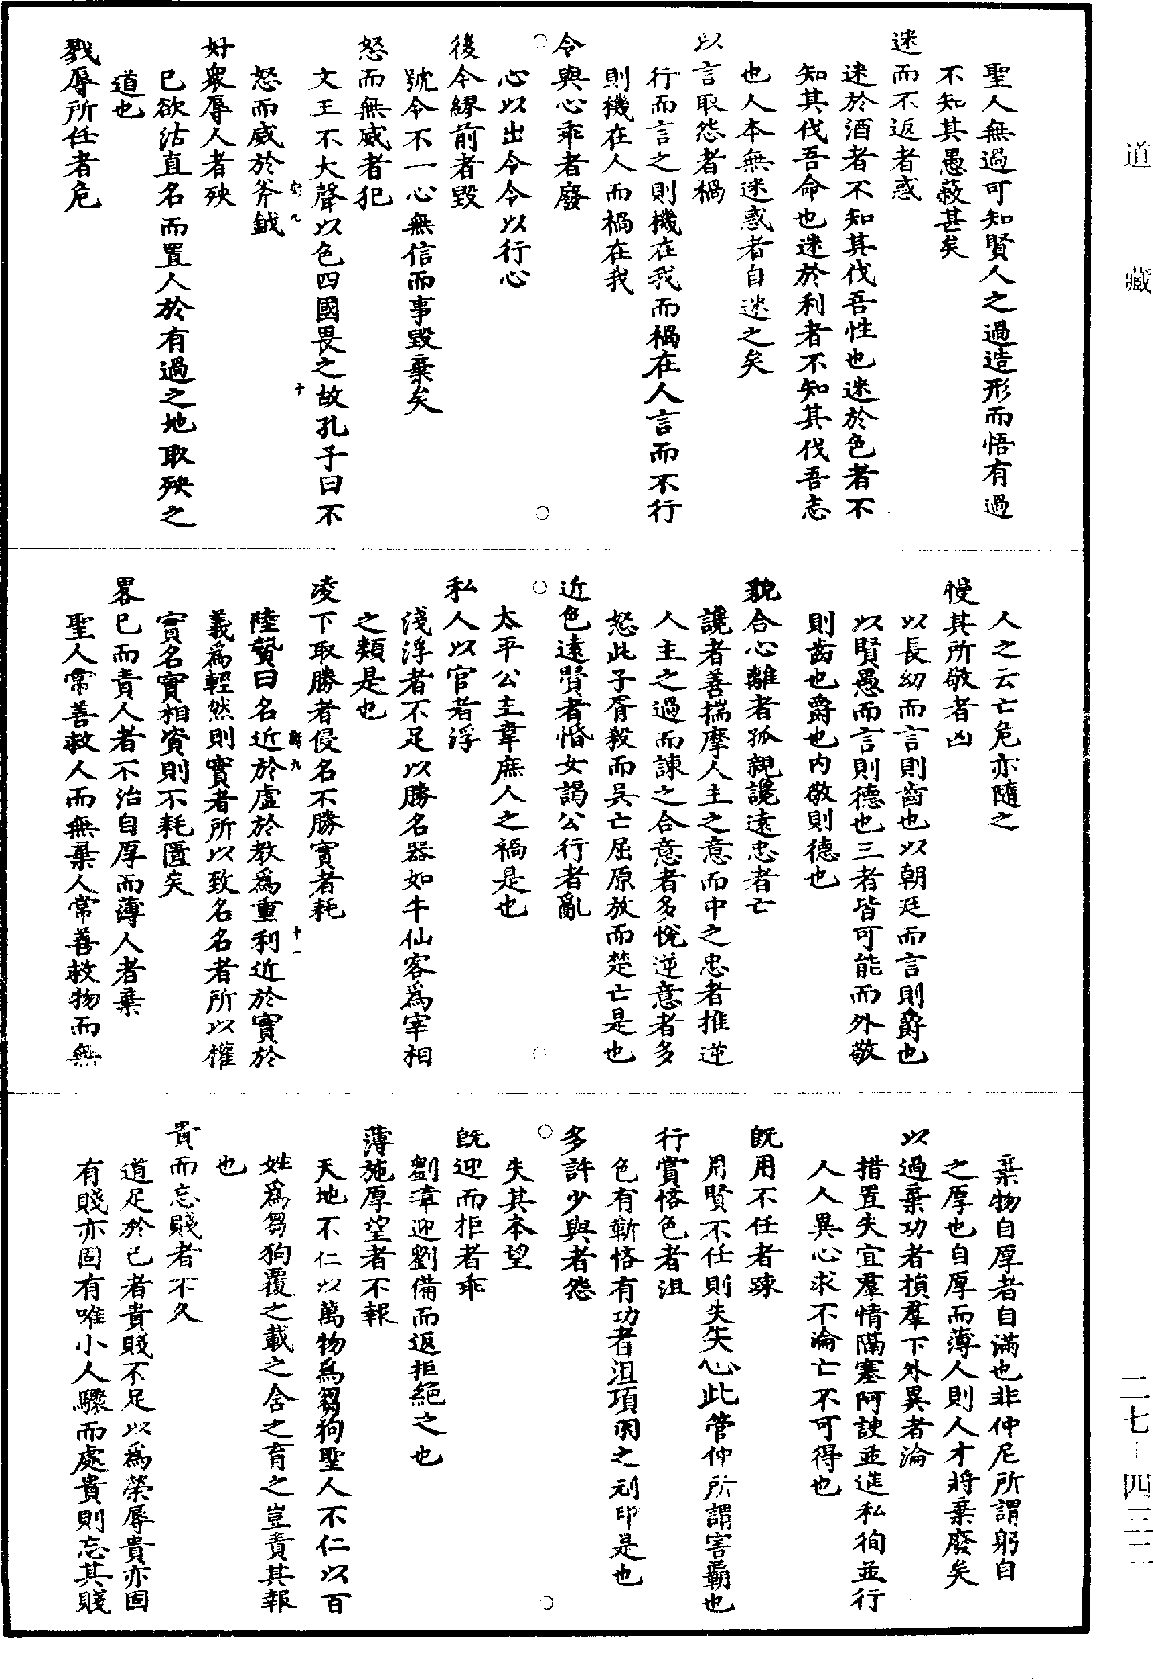 道藏
二七-四三二
聖人無過可知賢人之過造形而悟有過
不知其愚蔽甚矣
迷而不返者惑
迷於酒者不知其伐吾性也迷於色者不
知其伐吾命也迷於利者不知其伐吾志
也人本無迷惑者自迷之矣
以言取怨者禍
行而言之則機在我而禍在人言而不行
則機在人而禍在我
令與心乖者廢
心以出令令以行心
後令繆前者毀
號令不一心無信而事毀棄矣
怒而無威者犯
文王不大聲以色四國畏之故孔子曰不
怒而威於斧鉞
好衆辱人者殃
已欲沽直名而置人於有過之地取殃之
道也
戮辱所任者危
人之云亡危亦隨之
慢其所敬者凶
以長幼而言則齒也以朝廷而言則爵也
以賢愚而言則德也三者皆可能而外敬
則齒也爵也内敬則德也
貌合心離者孤親讒遠忠者亡
讒者善揣摩人主之意而中之忠者推逆
人主之過而諫之合意者多悅逆意者多
怒此子胥殺而吳亡屈原放而楚亡是也
近色遠賢者惛女謁公行者亂
太平公主韋庶人之禍是也
私人以官者浮
淺浮者不足以勝名器如牛仙客爲宰相
之類是也
凌下取勝者侵名不勝實者耗
陸贄曰名近於虛於教爲重利近於實於
義爲輕然則實者所以致名名者所以權
實名實相資則不耗匱矣
畧已而責人者不治自厚而薄人者棄
聖人常善救人而無棄人常善救物而無
棄物自厚者自滿也非仲尼所謂躬自
之厚也自厚而薄人則人才將棄廢矣
以過棄功者損羣下外異者淪
措置失宜羣情隔塞阿諛並進私徇並行
人人異心求不淪亡不可得也
旣用不任者疎
用賢不任則失失心此管仲所謂害霸也
行賞悋色者沮
色有靳悋有功者沮項羽之刓印是也
多許少與者怨
失其本望
旣迎而拒者乖
劉漳迎劉備而返拒絶之也
薄施厚望者不報
天地不仁以萬物爲芻狗聖人不仁以百
姓爲芻狗覆之載之含之育之豈責其報
也
貴而忘賤者不久
道足於已者貴賤不足以爲榮辱貴亦固
有賤亦固有唯小人驟而處貴則忘其賤